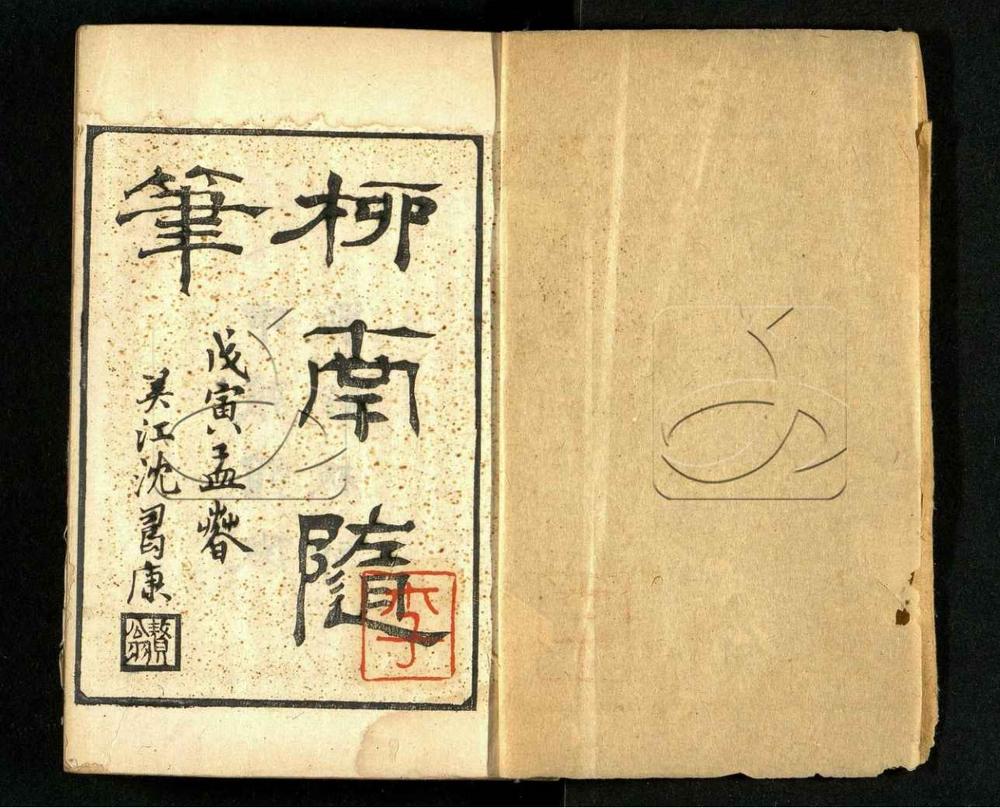 柳南隨
筆
戊寅孟春
吳江沈曷康
贅翁
李